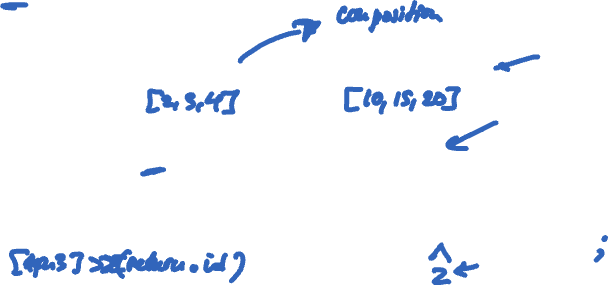 composition
[2, 3, 4] [10, 15, 20]
(return . id)
2
;